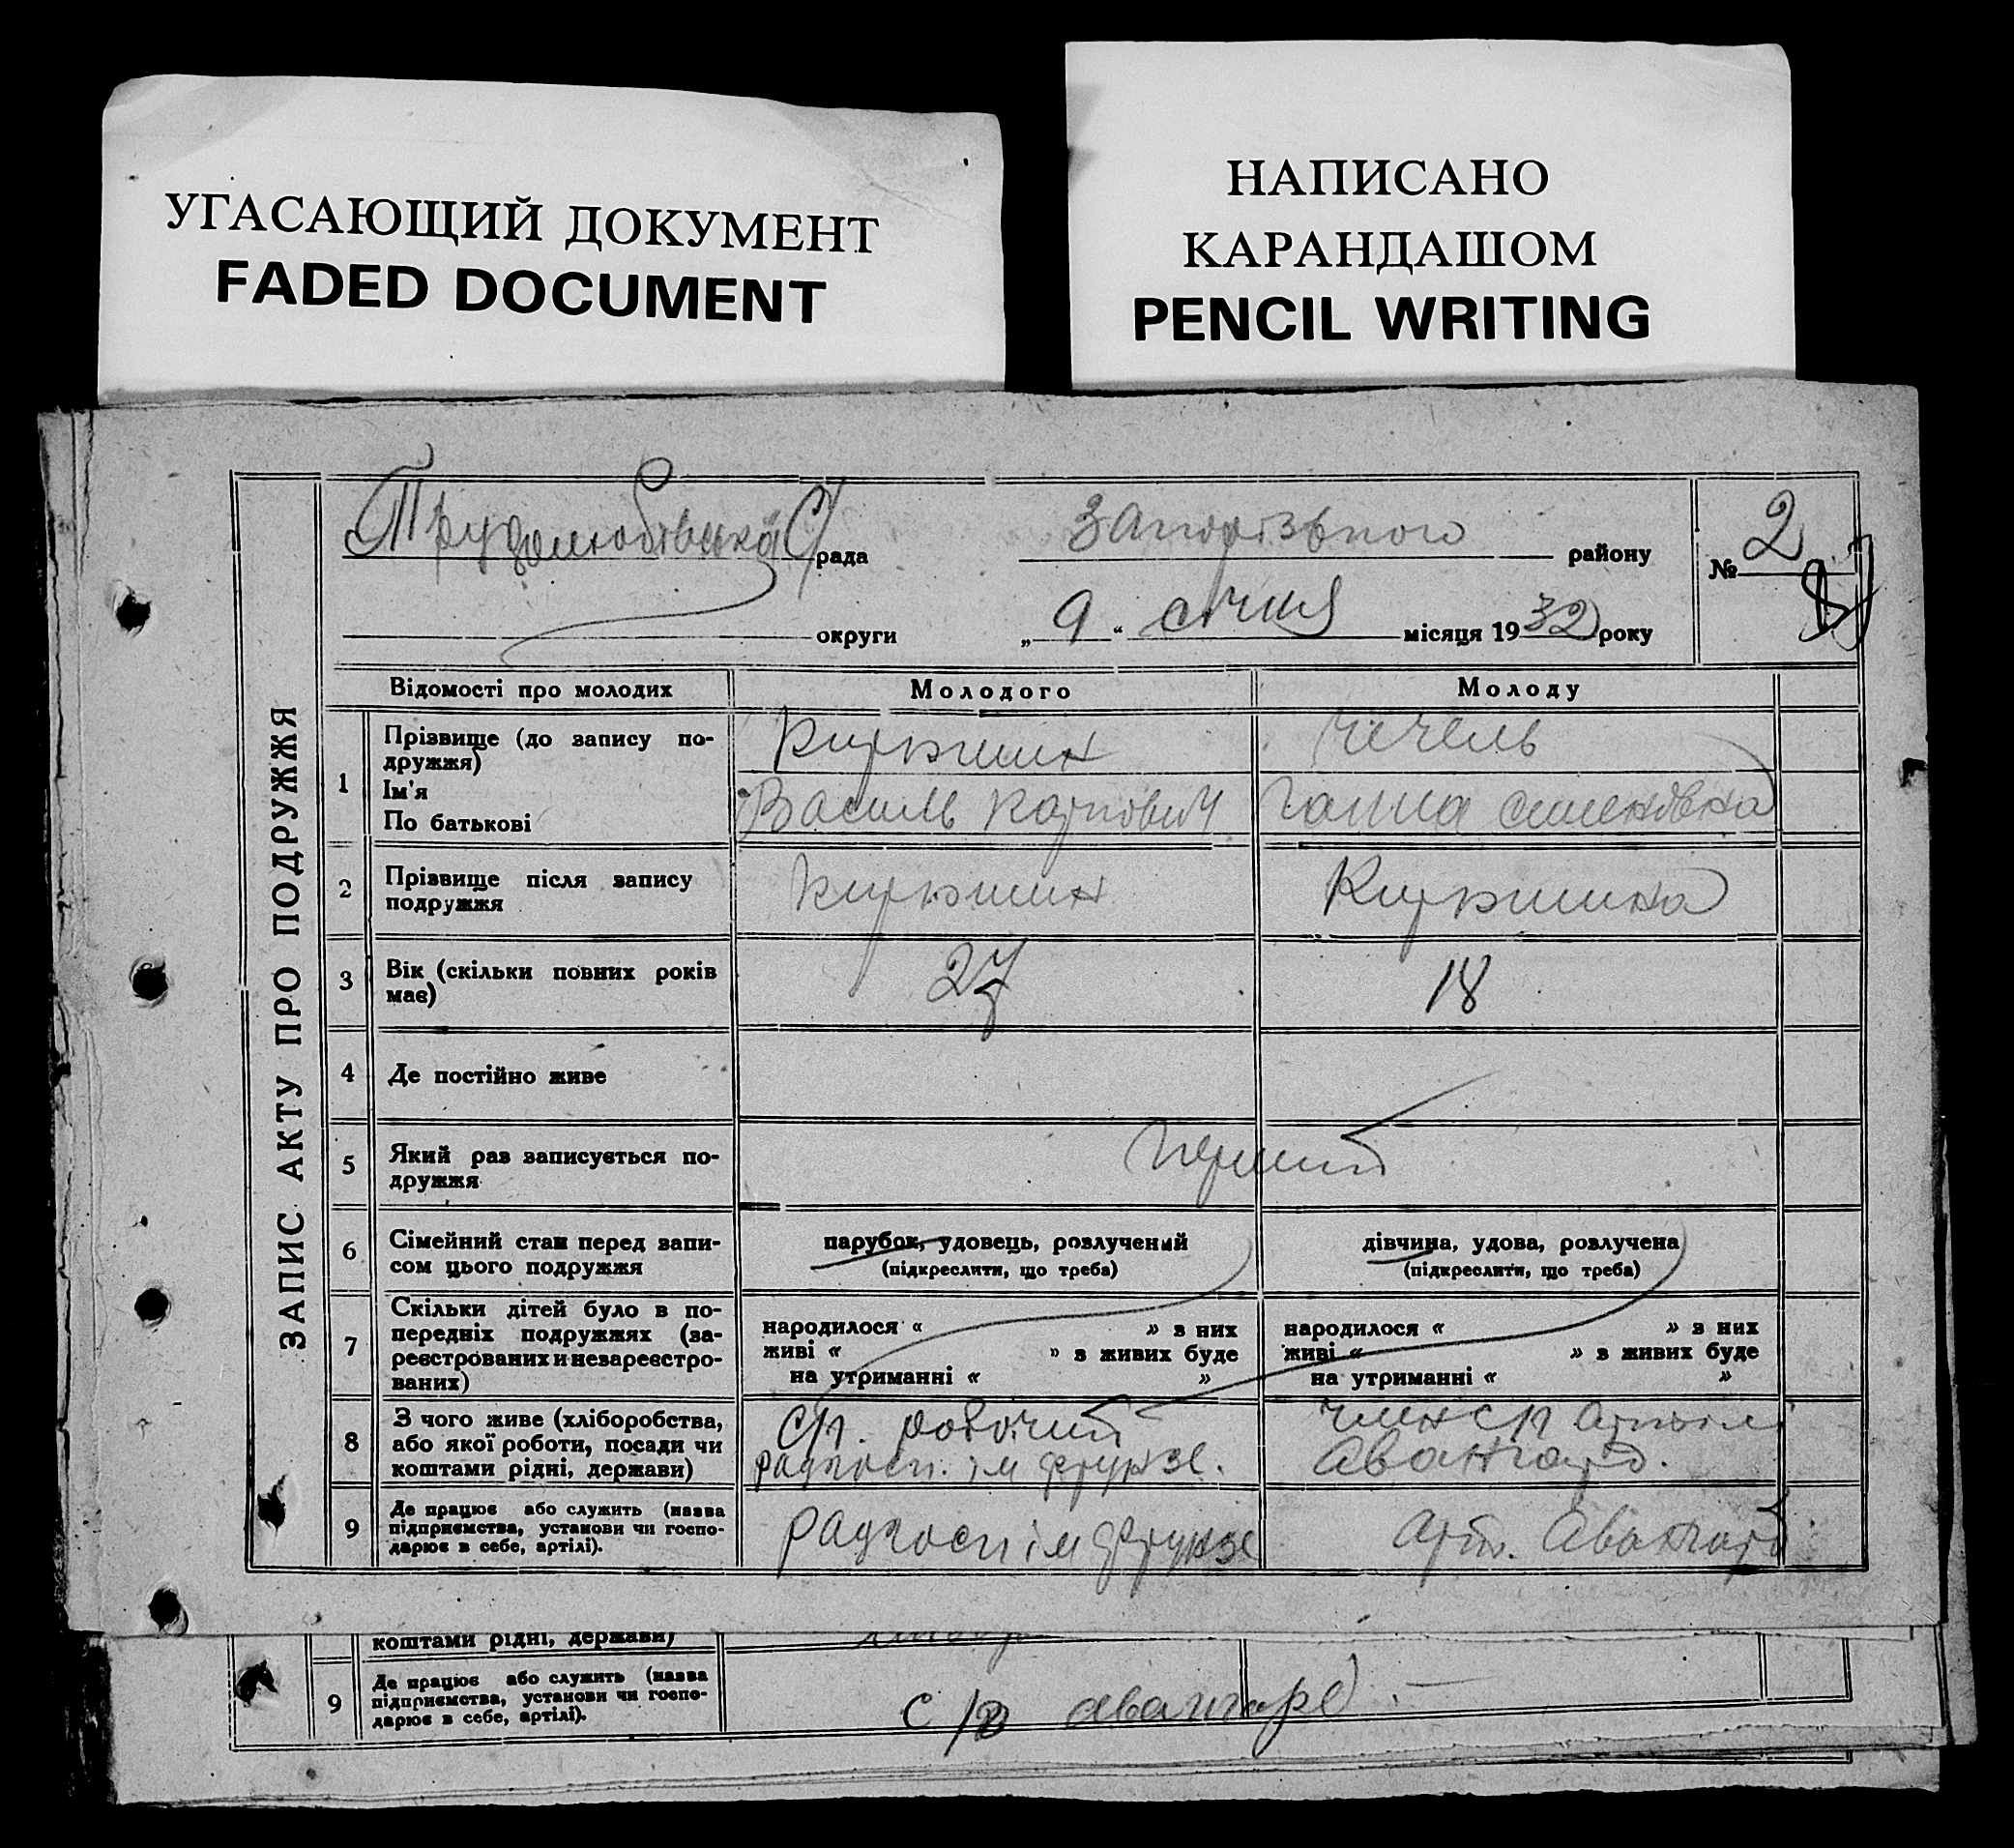 УГАСАЮЩИЙ ДОКУМЕНТ
FADED DOCUMENT
НАПИСАНО
КАРАНДАШОМ
PENCIL WRITING
ЗАПИС АКТУ ПРО ПОДРУЖЖЯ
Трудолюбівська С/рада Запорізького району № 2
округи „ 9 “ січня місяця 1932 року
Відомості про молодих Молодого Молоду
1 Прізвище (до запису по-
дружжя) Чечель
Ім'я
По батькові Василь Карпович Ганна Семеновна
2 Прізвище після запису
подружжя
3 Вік (скільки повних років
має) 27 18
4 Де постійно живе
5 Який раз записується по-
дружжя Перший
6 Сімейний стан перед запи-
сом цього подружжя
парубок, удовець, розлучений дівчина, удова, розлучена
(підкреслити, що треба) (підкреслити, що треба)
7 Скільки дітей було в по-
передніх подружжях (за-
реєстрованих и незареєстро-
ваних)
народилося « » з них народилося « » з них
живі « » з живих буде живі « » з живих буде
на утриманні « » на утриманні « »
8 З чого живе (хліборобства,
або якої роботи, посади чи
коштами рідні, держави)
с/г. робочий член с/г артілі
радгосп. ім Фрунзе. Авангард.
9 Де працює або служить (назва
підприємства, установи чи госпо-
дарює в себе, артілі).
радгосп ім Фрунзе Арт. Авангард.
коштами рідні, держави)
9 Де працює або служить (назва
підприємства, установи чи госпо-
дарює в себе, артілі).
авангард.